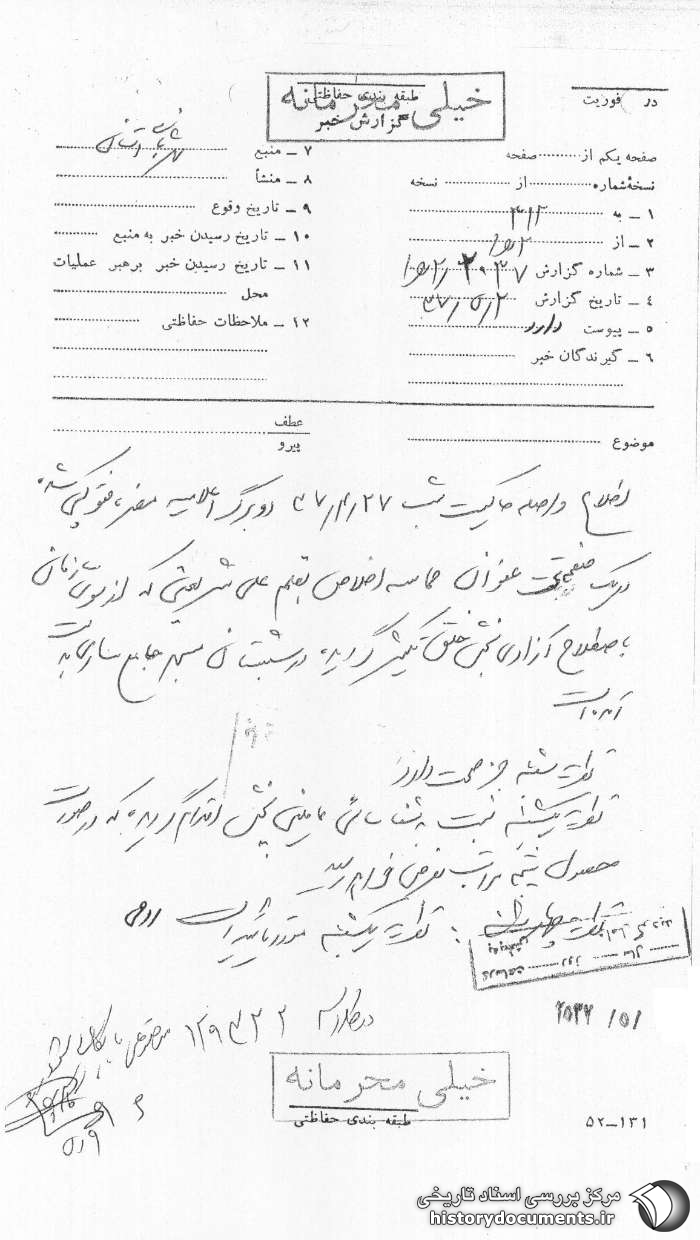 خیلی محرمانه
طبقه بندی حفاظتی
گزارش خبر
در فوریت
صفحه یکم از صفحه
نسخه شماره از نسخه
۱ ـ به ۳۱۲
۲ ـ از
۳ ـ شماره گزارش
۴ ـ تاریخ گزارش ۳۷/۵/۲
۵ ـ پیوست دارد
۶ ـ گیرندگان خبر
۷ ـ منبع
۸ ـ منشأ
۹ ـ تاریخ وقوع
۱۰ ـ تاریخ رسیدن خبر به منبع
۱۱ ـ تاریخ رسیدن خبر برهبر عملیات
محل
۱۲ ـ ملاحظات حفاظتی
عطف
پیرو
موضوع
اطلاع واصله حاکیست شب ۳۷/۴/۲۷ دو برگ اعلامیه مضره فتوکپی شده
در یک صفحه تحت عنوان حماسه اخلاص بقلم علی شریعتی که از سوی سازمان
باصطلاح آزادی بخش خلق تکثیر گردیده در شبستان مسجد جامع ساری بدست
آمده است
نظریه شنبه خبر صحت دارد
نظریه یکشنبه نسبت به شناسائی عاملین پخش اقدام گردیده که در صورت
حصول نتیجه مراتب بعرض خواهد رسید
نظریه یکشنبه مورد تائید است
۲۵۳۷ /۵/
در کلاسه ۱۲۹۳۲۲
۵/۹
خیلی محرمانه
طبقه بندی حفاظتی
۵۲ـ۱۳۱
مرکز بررسی اسناد تاریخی
historydocuments.ir